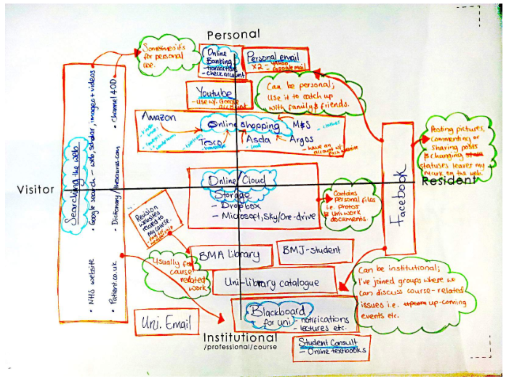 Personal
Sometimes it's
for personal
use.
Online
Banking
- transactions
- check account
Personal email
x2 =
Youtube
- use w/ Google
account
Can be personal;
Use it to catch up
with family & friends.
Amazon
Online Shopping
M&S
Tesco
Asda
Argos
- have an
Searching the Web
• Google search - web, scholar, images + videos
• Channel 4OD
• NHS website
• Dictionary/thesaurus.com
• Patient.co.uk
Visitor
Resident
Posting pictures,
commenting or
sharing posts
+ changing
statuses leaves my
on the web.
Facebook
Online/Cloud
Storage
- Dropbox
- Microsoft, Sky/One-drive
Contains
personal files
i.e. photos
& uni work
documents.
Revision
websites
related to
my course.
Usually for
course
related
work
BMA library
BMJ-student
Uni-library catalogue
Can be institutional;
I've joined groups where we
can discuss course-related
issues i.e. up-coming
events etc.
Uni. Email
Blackboard
for uni
- notifications
- lectures etc.
Institutional
/professional/course
Student Consult
- Online textbooks